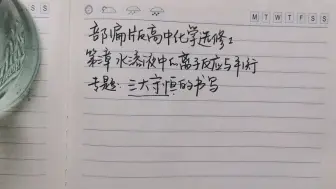 M T W T F S S
部编版高中化学选修1
第三章 水溶液中的离子反应与平衡
专题：三大守恒的书写